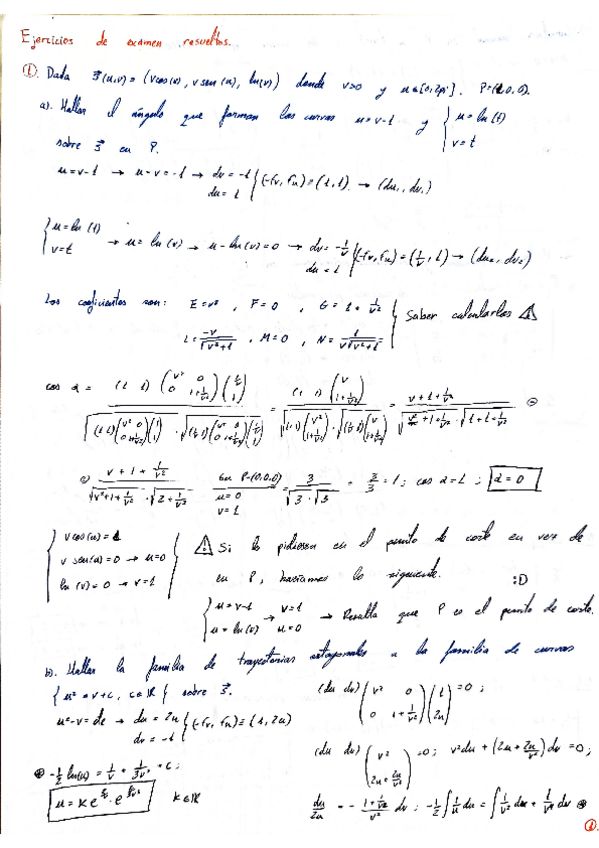 Ejercicios de examen resueltos.
①. Dada s⃗(u,v) = (v cos(u), v sen(u), ln(v)) donde v>0 y u∈[0,2pi]. P=(1,0,0).
a). Hallar el ángulo que forman las curvas u=v-1 y { u=ln(t)
v=t
sobre s⃗ en P.
u=v-1 → u-v=-1 → dv=-1
du=1 } (-fv, fu)=(1,1) → (du₁, dv₁)
{ u=ln(t)
v=t → u=ln(v) → u-ln(v)=0 → dv=-1/v
du=1 } (-fv, fu)=(1/v, 1) → (du₂, dv₂)
Los coeficientes son: E=v² , F=0 , G=1+1/v² } Saber calcularlos ⚠
L=-v/√(v²+1) , M=0 , N=1/(v√(v²+1))
cos α = (1 1)(v² 0; 0 1+1/v²)(1/v; 1) / = (1 1)(v; 1+1/v²) / = v+1+1/v² /
v+1+1/v² / √(v²+1+1/v²)·√(2+1/v²) En P=(0,0,0) u=0 v=1 = 3/(√3·√3) = 3/3 = 1; cos α=1; α=0
{ v cos(u)=1
v sen(u)=0 → u=0
ln(v)=0 → v=1
⚠ Si lo pidiesen en el punto de corte en vez de
en P, haríamos lo siguiente. :D
{ u=v-1
u=ln(v) → v=1
u=0 → Resulta que P es el punto de corte.
b). Hallar la familia de trayectorias ortogonales a la familia de curvas
{ u²=v+c, c∈ℝ } sobre s⃗.
(du dv)(v² 0; 0 1+1/v²)(1; 2u)=0;
u²-v=c → du=2u
dv=-1 } (-fv, fu)=(1, 2u)
(du dv)(v²; 2u+2u/v²)=0; v²du+(2u+2u/v²)dv=0;
du/2u = -(1+1/v²)/v² dv; -1/2∫1/u du = ∫1/v² dv + 1/v⁴ dv ⊛
⊛ -1/2 ln(u) = 1/v + 1/3v³ + c;
k∈ℝ
①.